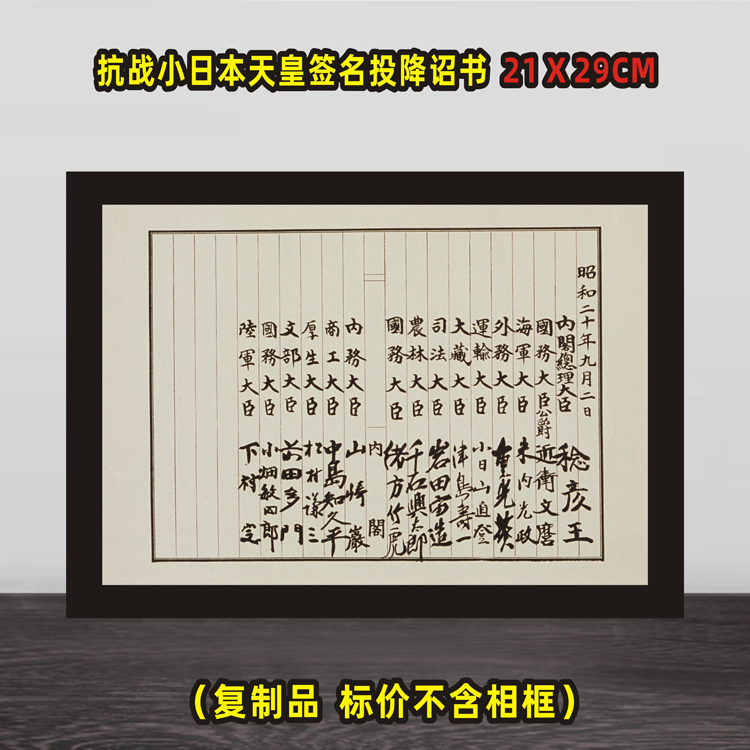 抗战小日本天皇签名投降诏书 21X29CM
昭和二十年九月二日
内閣總理大臣 稔彦王
國務大臣公爵 近衛文麿
海軍大臣 米内光政
外務大臣 重光葵
運輸大臣 小日山直登
大藏大臣 津島壽一
司法大臣 岩田宙造
農林大臣 千石興太郎
國務大臣 緒方竹虎
内閣
内務大臣 山崎巖
商工大臣 中島知久平
厚生大臣 松村謙三
文部大臣 前田多門
國務大臣 小畑敏四郎
陸軍大臣 下村定
（复制品 标价不含相框）